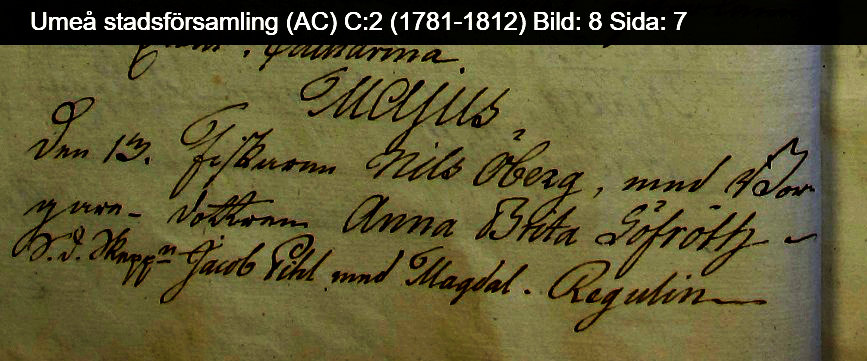 Umeå stadsförsamling (AC) C:2 (1781-1812) Bild: 8 Sida: 7
Catharina
Majus
Den 13. Fiskaren Nils Öberg, med Bor
gare- dottren Anna Brita Löfroth
S. d. Skepp.n Jacob Pihl med Magdal. Regulin